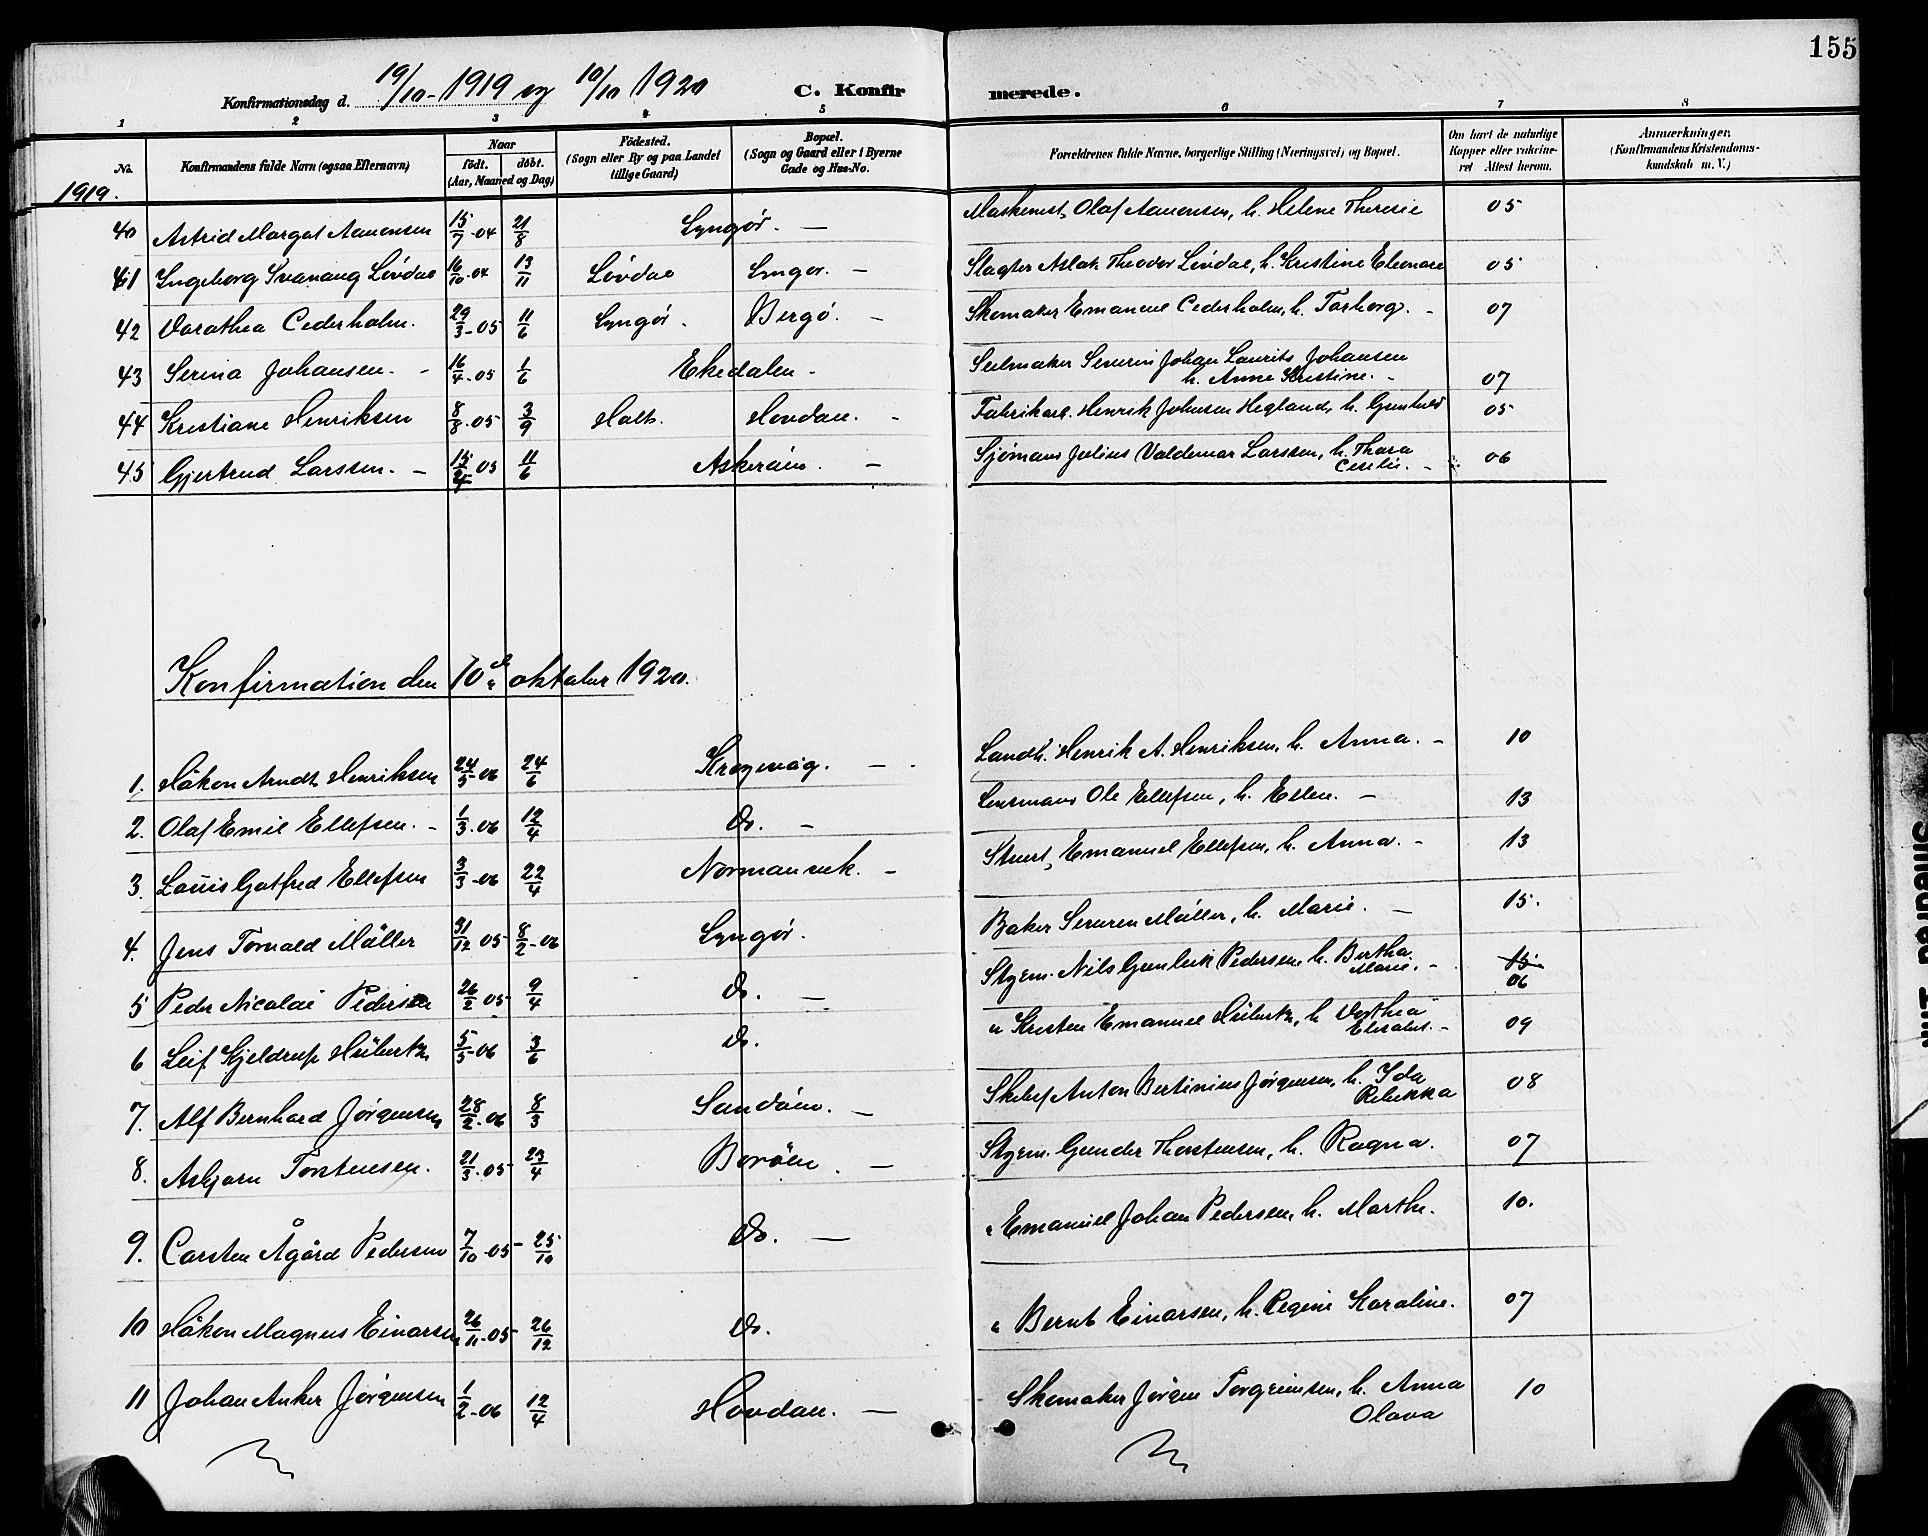 155
Konfirmationsdag d. 19/10 - 1919 og 10/10 1920 C. Konfirmerede.
1 2 3 4 5 6 7 8
No. Konfirmandens fulde Navn (ogsaa Efternavn) Naar födt. döbt. (Aar, Maaned og Dag) Födested. (Sogn eller By og paa Landet tillige Gaard) Bopæl. (Sogn og Gaard eller i Byerne Gade og Hus-No. Forældrenes fulde Navne, borgerlige Stilling (Næringsvei) og Bopæl. Om havt de naturlige Kopper eller vakcineret Attest herom. Anmærkninger. (Konfirmandens Kristendomskundskab m. V.)
1919.
40 Astrid Margot Aanonsen 15/7 - 04 21/8 Lyngör. — Maskenist Olaf Aanonsen, h. Helene Theresie 05
41 Ingeborg Svanaug Lövdal 16/10 - 04 13/11 Lövdal Lyngör. — Slagter Aslak Theodor Lövdal, h. Kristine Eleonore 05
42 Dorothea Cederholm. 29/3 - 05 11/6 Lyngör. Bergö. — Skomaker Emanuel Cederholm, h. Torborg. - 07
43 Serina Johansen. - 16/4 - 05 1/6 Ekedalen - Seilmaker Severin Johan Laurits Johansen
h. Anne Kristine. - 07
44 Kristiane Henriksen 8/8 - 05 3/9 Holt. Hovdan. - Fabrikarb. Henrik Johnsen Hegland, h. Gunhild 05
45 Gjertrud Larssen. - 15/4 05 11/6 Askeröin. — Sjömand Julius Valdemar Larssen, h. Thora
Cecilie. - 06
Konfirmation den 10de oktober 1920.
1. Håkon Arndt Henriksen 24/5 - 06 24/6 Krogevåg. — Landh. Henrik A. Henriksen, h. Anna. - 10
2. Olaf Emil Ellefsen. - 1/3 - 06 12/4 Do. — Lensmand Ole Ellefsen, h. Ellen. — 13
3. Louis Gotfred Ellefsen 3/3 - 06 22/4 Normanvik. - Stuert Emanuel Ellefsen, h. Anna. - 13
4. Jens Torvald Möller 31/12 05 8/2 - 06 Lyngör. Baker Severin Möller, h. Marie. — 15.
5 Peder Nicolai Pedersen 26/2 05 9/4 Do. — Styrm. Nils Gunleik Pedersen h. Bertha
Marie. - 15 06
6 Leif Kjeldrup Hübertz 5/5 - 06 3/6 Do. " Kristen Emanuel Hübertz, h. Dorthea
Elisabet. - 09
7. Alf Bernhard Jörgensen 28/2 - 06 8/3 Sandöen. — Skibsf Anton Bertinius Jörgensen, h. Ida
Rebekka 08
8. Asbjørn Torstensen. 21/3 - 05 23/4 Boröen. — Styrm. Gunder Thorstensen, h. Ragna. 07
9. Carsten Ågård Pedersen 7/10 - 05 - 25/10 Do. — " Emanuel Johan Pedersen, h. Marthe. 10.
10 Håkon Magnus Einarsen 26/11 - 05 - 26/12 Do. " Bernt Einarsen, h. Regine Karoline. 07
11 Johan Anker Jörgensen 1/2 - 06 12/4 Hovdan. — Skomaker Jörgen Torgrimsen, h. Anna
Olava 10